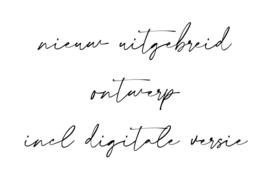 nieuw uitgebreid
ontwerp
incl digitale versie